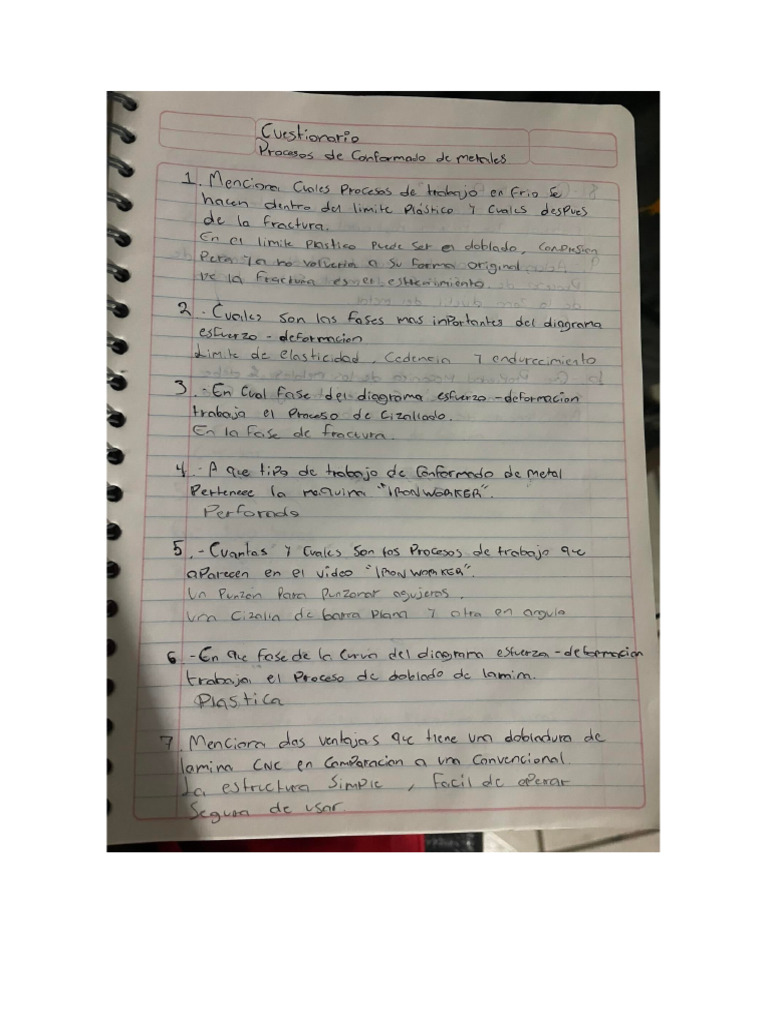 Cuestionario
Procesos de Conformado de metales
1. Menciona Cuales Procesos de trabajo en frio se
hacen dentro del limite Plástico y Cuales despues
de la fractura.
En el limite plastico puede ser el doblado,
Pero ya no volveria a su forma original.
De la fractura es en el
2. - Cuales son las fases mas inportantes del diagrama
esfuerzo - deformacion
Limite de elasticidad, Cedencia y endurecimiento
3. - En Cual Fase del diagrama esfuerzo - deformacion
trabaja el Proceso de Cizallado.
En la Fase de fractura.
4. - A que tipo de trabajo de Conformado de metal
Pertenece la maquina "IRON WORKER".
Perforado
5. - Cuantos y Cuales son los Procesos de trabajo que
aparecen en el video "IRON WORKER".
Un Punzón Para Punzonar agujeros.
una Cizalla de barra plana y otra en angulo
6 - En que fase de la Curva del diagrama esfuerzo - deformacion
trabaja el Proceso de doblado de lamina.
Plastica
7. Menciona dos ventajas que tiene una dobladora de
lamina CNC en Comparacion a una Convencional.
La estructura simple, facil de operar
Segura de usar.